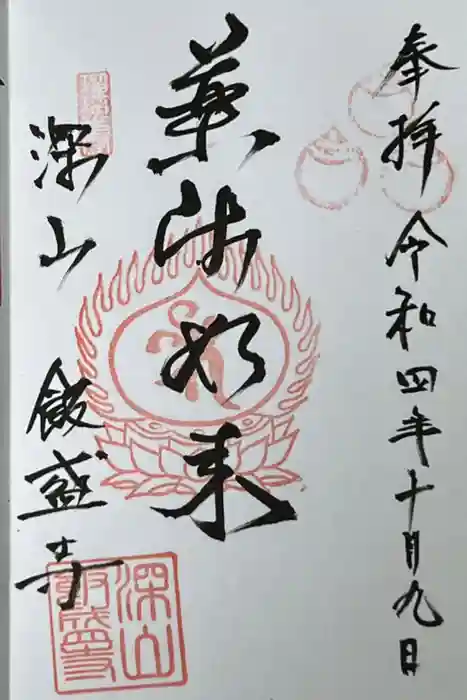 奉拝 令和四年十月九日
薬師如来
深山 飯盛寺
深山飯盛寺